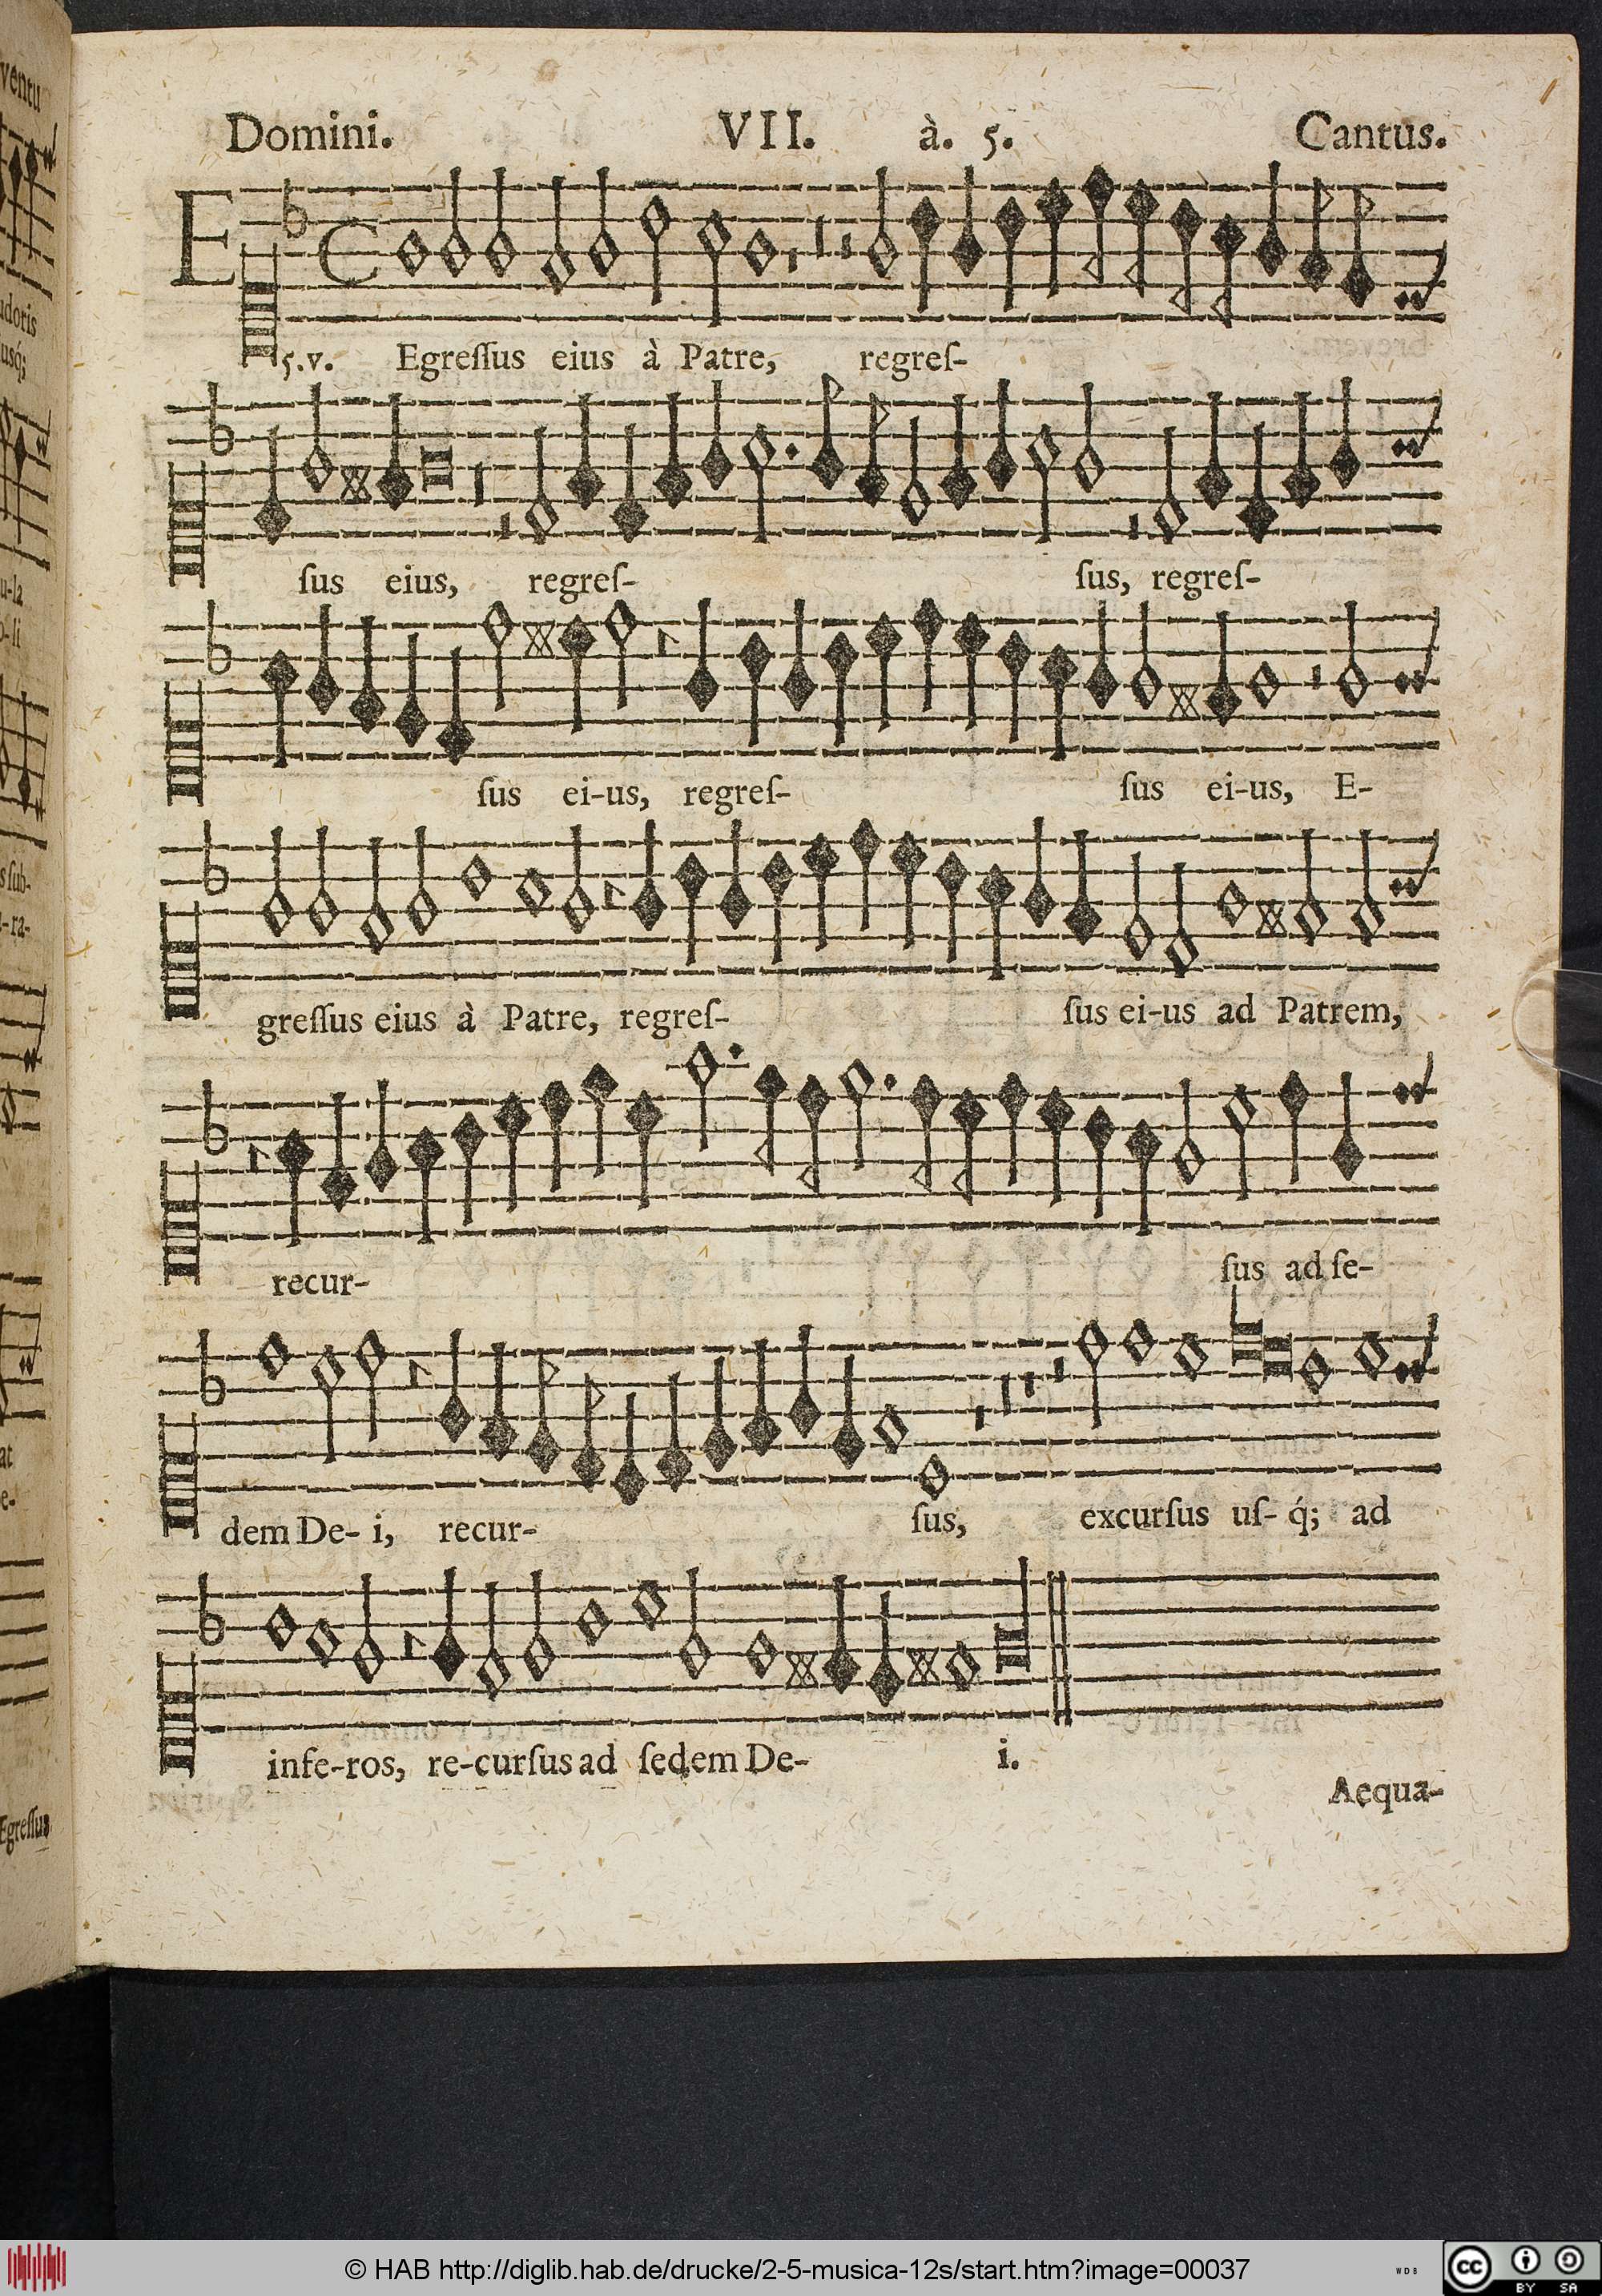 Domini. VII. à. 5. Cantus.
E
5.v. Egreſſus eius à Patre, regreſ-
ſus eius, regreſ- ſus, regreſ-
ſus ei-us, regreſ- ſus ei-us, E-
greſſus eius à Patre, regreſ- ſus ei-us ad Patrem,
recur- ſus ad ſe-
dem De- i, recur- ſus, excurſus uſ- q́; ad
infe-ros, re-curſus ad ſedem De- i.
Aequa-
ventu
udoris
usq́;
u-la
o-li
s ſub-
t-ra-
at
e-
Egreſſus
© HAB http://diglib.hab.de/drucke/2-5-musica-12s/start.htm?image=00037
WDB
cc BY SA